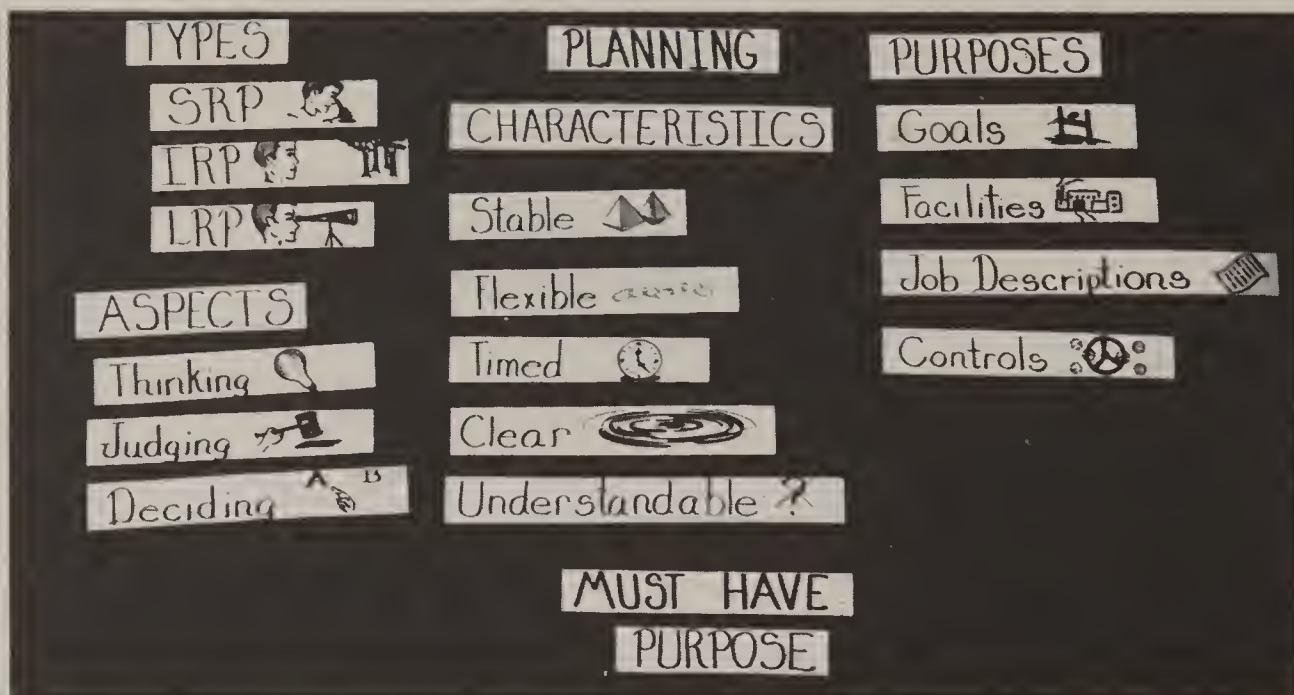 TYPES
SRP
IRP
LRP
ASPECTS
Thinking
Judging
Deciding
A B
PLANNING
CHARACTERISTICS
Stable
Flexible
Timed
Clear
Understandable ?
MUST HAVE
PURPOSE
PURPOSES
Goals
Facilities
Job Descriptions
Controls